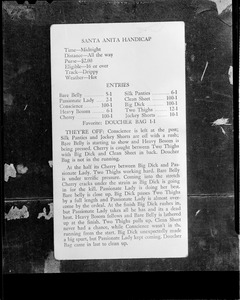 SANTA ANITA HANDICAP
Time—Midnight
Distance—All the way
Purse—$2.00
Eligible—16 or over
Track—Drippy
Weather—Hot
ENTRIES
Bare Belly 5-1 Silk Panties 6-1
Passionate Lady 2-1 Clean Sheet 100-1
Conscience 100-1 Big Dick
Heavy Bosom 6-1 Two Thighs
Cherry 100-1 Jockey Shorts
Favorite: DOUCHEE BAG
THEY'RE OFF: Conscience is left at the post;
Silk Panties and Jockey Shorts are off with a rush;
Bare Belly is starting to show and Heavy Bosom is
being pressed. Cherry is caught between Two Thighs
with Big Dick and Clean Sheet in back. Douchee
Bag is not in the running.
At the half its Cherry between Big Dick and Pas-
sionate Lady. Two Thighs working hard. Bare Belly
is under terrific pressure. Coming into the stretch
Cherry cracks under the strain as Big Dick is going
in for the kill. Passionate Lady is doing her best.
Bare Belly is close up. Big Dick passes Two Thighs
by a full length and Passionate Lady is almost over-
come by the ordeal. At the finish Big Dick rushes in,
but Passionate Lady takes all he has and its a dead
heat. Heavy Bosom follows and Bare Belly is lathered
up at the finish. Two Thighs pulls up. Clean Sheet
never had a chance, while Conscience wasn't in the
running from the start. Big Dick unexpectedly made
a big spurt, but Passionate Lady kept coming. Douchee
Bag came in last to clean up.